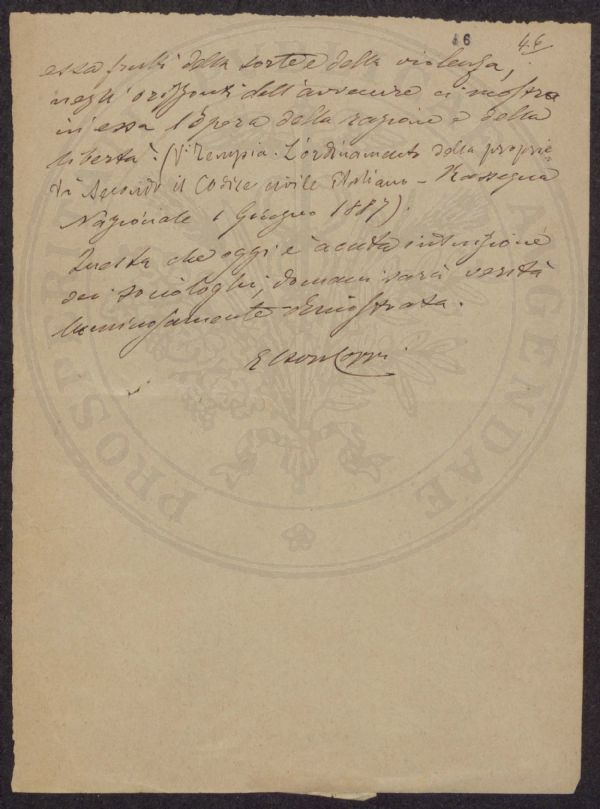 46 46
essa frutti della sorte e della violenza,
negli orizzonti dell'avvenire ci mostra
in essa l'opera della ragione e della
libertà". (V. Zempia. L'ordinamento della proprie-
tà secondo il Codice civile Italiano - Rassegna
Nazionale 1 Giugno 1887).
Questa che oggi è acuta intuizione
dei sociologhi, domani sarà verità
luminosamente dimostrata.
PROSPERITATI AGENDAE